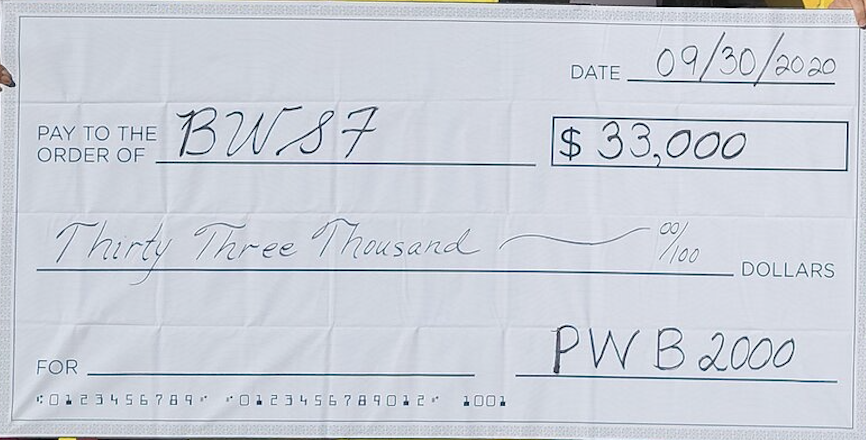 DATE 09/30/2020
PAY TO THE
ORDER OF BWSF $ 33,000
Thirty Three Thousand 00/100 DOLLARS
FOR PWB 2000
⑆0123456789⑈ ⑈0123456789012⑈ 1001